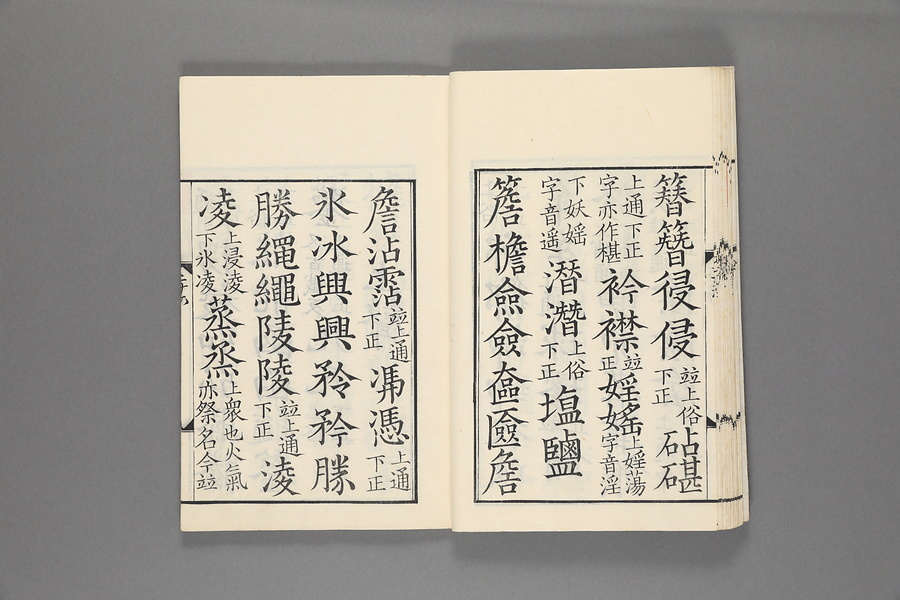 簪簮侵侵竝上俗下正砧碪
上通下正字亦作椹衿襟竝正婬媱上婬蕩字音淫
下妖媱字音遥潜潛上俗下正塩鹽
簷檐僉僉奩匳詹
詹沾霑竝上通下正憑上通下正
氷冰興興矜矜勝
勝繩繩陵陵竝上通下正淩
凌上浸淩下氷凌蒸烝上衆也火氣亦祭名今竝